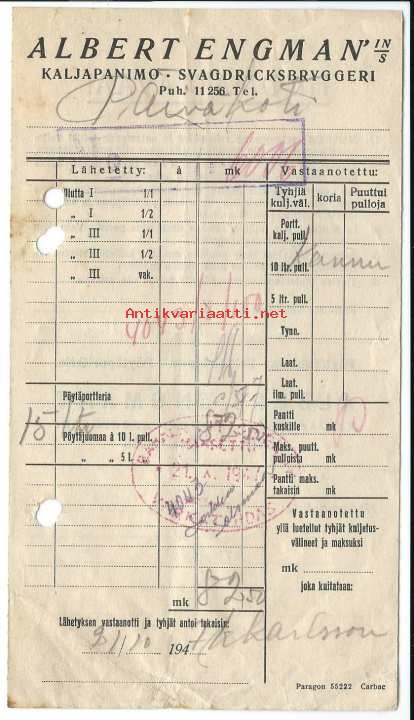 ALBERT ENGMAN' IN/S
KALJAPANIMO · SVAGDRICKSBRYGGERI
Puh. 11256 Tel.
Päiväkoti
Lähetetty: à mk Vastaanotettu:
Tyhjiä kulj.väl. koria Puuttui pulloja
Olutta I 1/1
„ I 1/2
„ III 1/1
„ III 1/2
„ III vak.
Portt. kalj. pull.
10 ltr. pull. Kannu
5 ltr. pull.
Antikvariaatti.net
Tyne.
Laat.
Laat. ilm. pull.
Pöytäportteria
15 Pöytäjuomaa à 10 l. pull.
„ „ 5 l. „
Pantti kuskille mk
Maks. puutt. pulloista mk
Pantti maks. takaisin mk
Vastaanotettu
yllä luetellut tyhjät kuljetus-
välineet ja maksuksi
mk
joka kuitataan:
mk 82 50
Lähetyksen vastaanotti ja tyhjät antoi takaisin:
31/10 194
Paragon 55222 Carbac